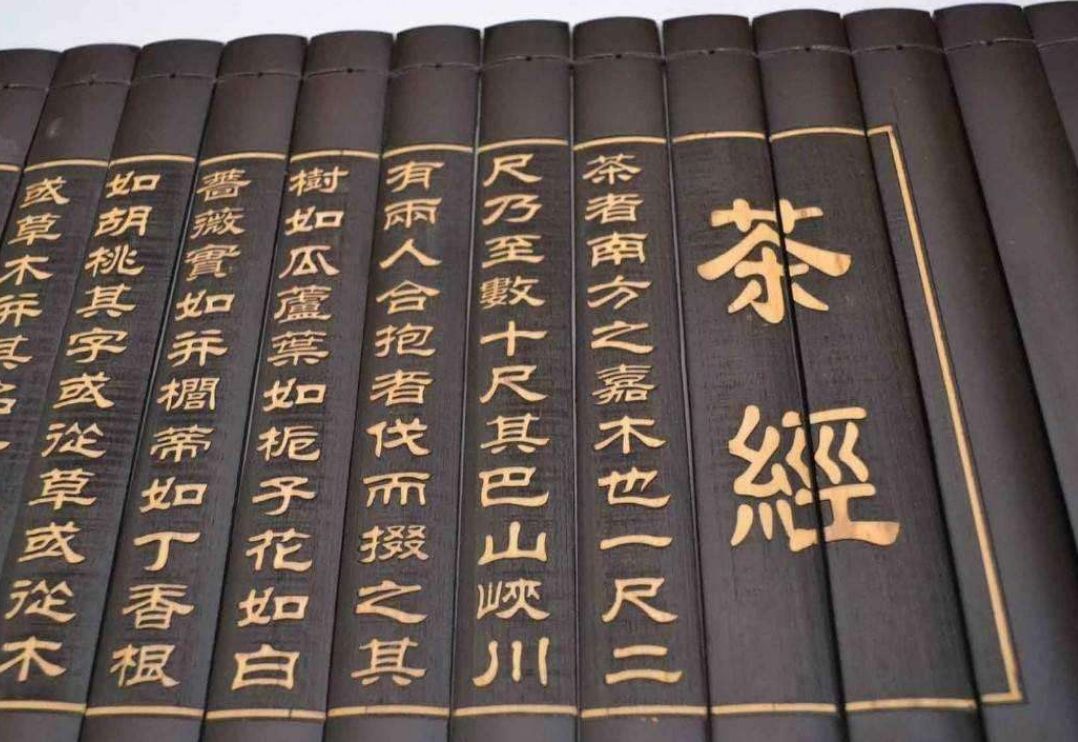 茶經
茶者南方之嘉木也一尺二
尺乃至數十尺其巴山峽川
有兩人合抱者伐而掇之其
樹如瓜蘆葉如栀子花如白
薔薇實如并櫚蒂如丁香根
如胡桃其字或從草或從木
或草木并其名